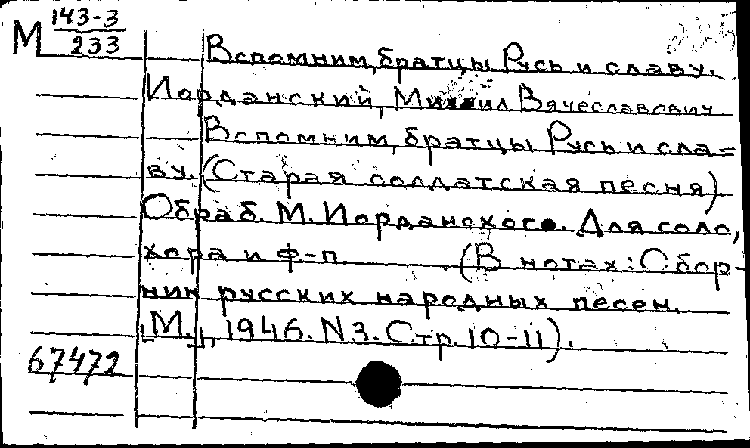 М 143-3
233
Вспомним, братцы Русь и славу.
Иорданский, Михаил Вячеславович
Вспомним, братцы Русь и сла=
ву. (Старая солдатская песня)
Обраб. М. Иорданского. Для соло,
хора и ф-п. (В нотах: Сбор-
ник русских народных песен.
[М.], 1946. N3. Стр. 10-11).
67472